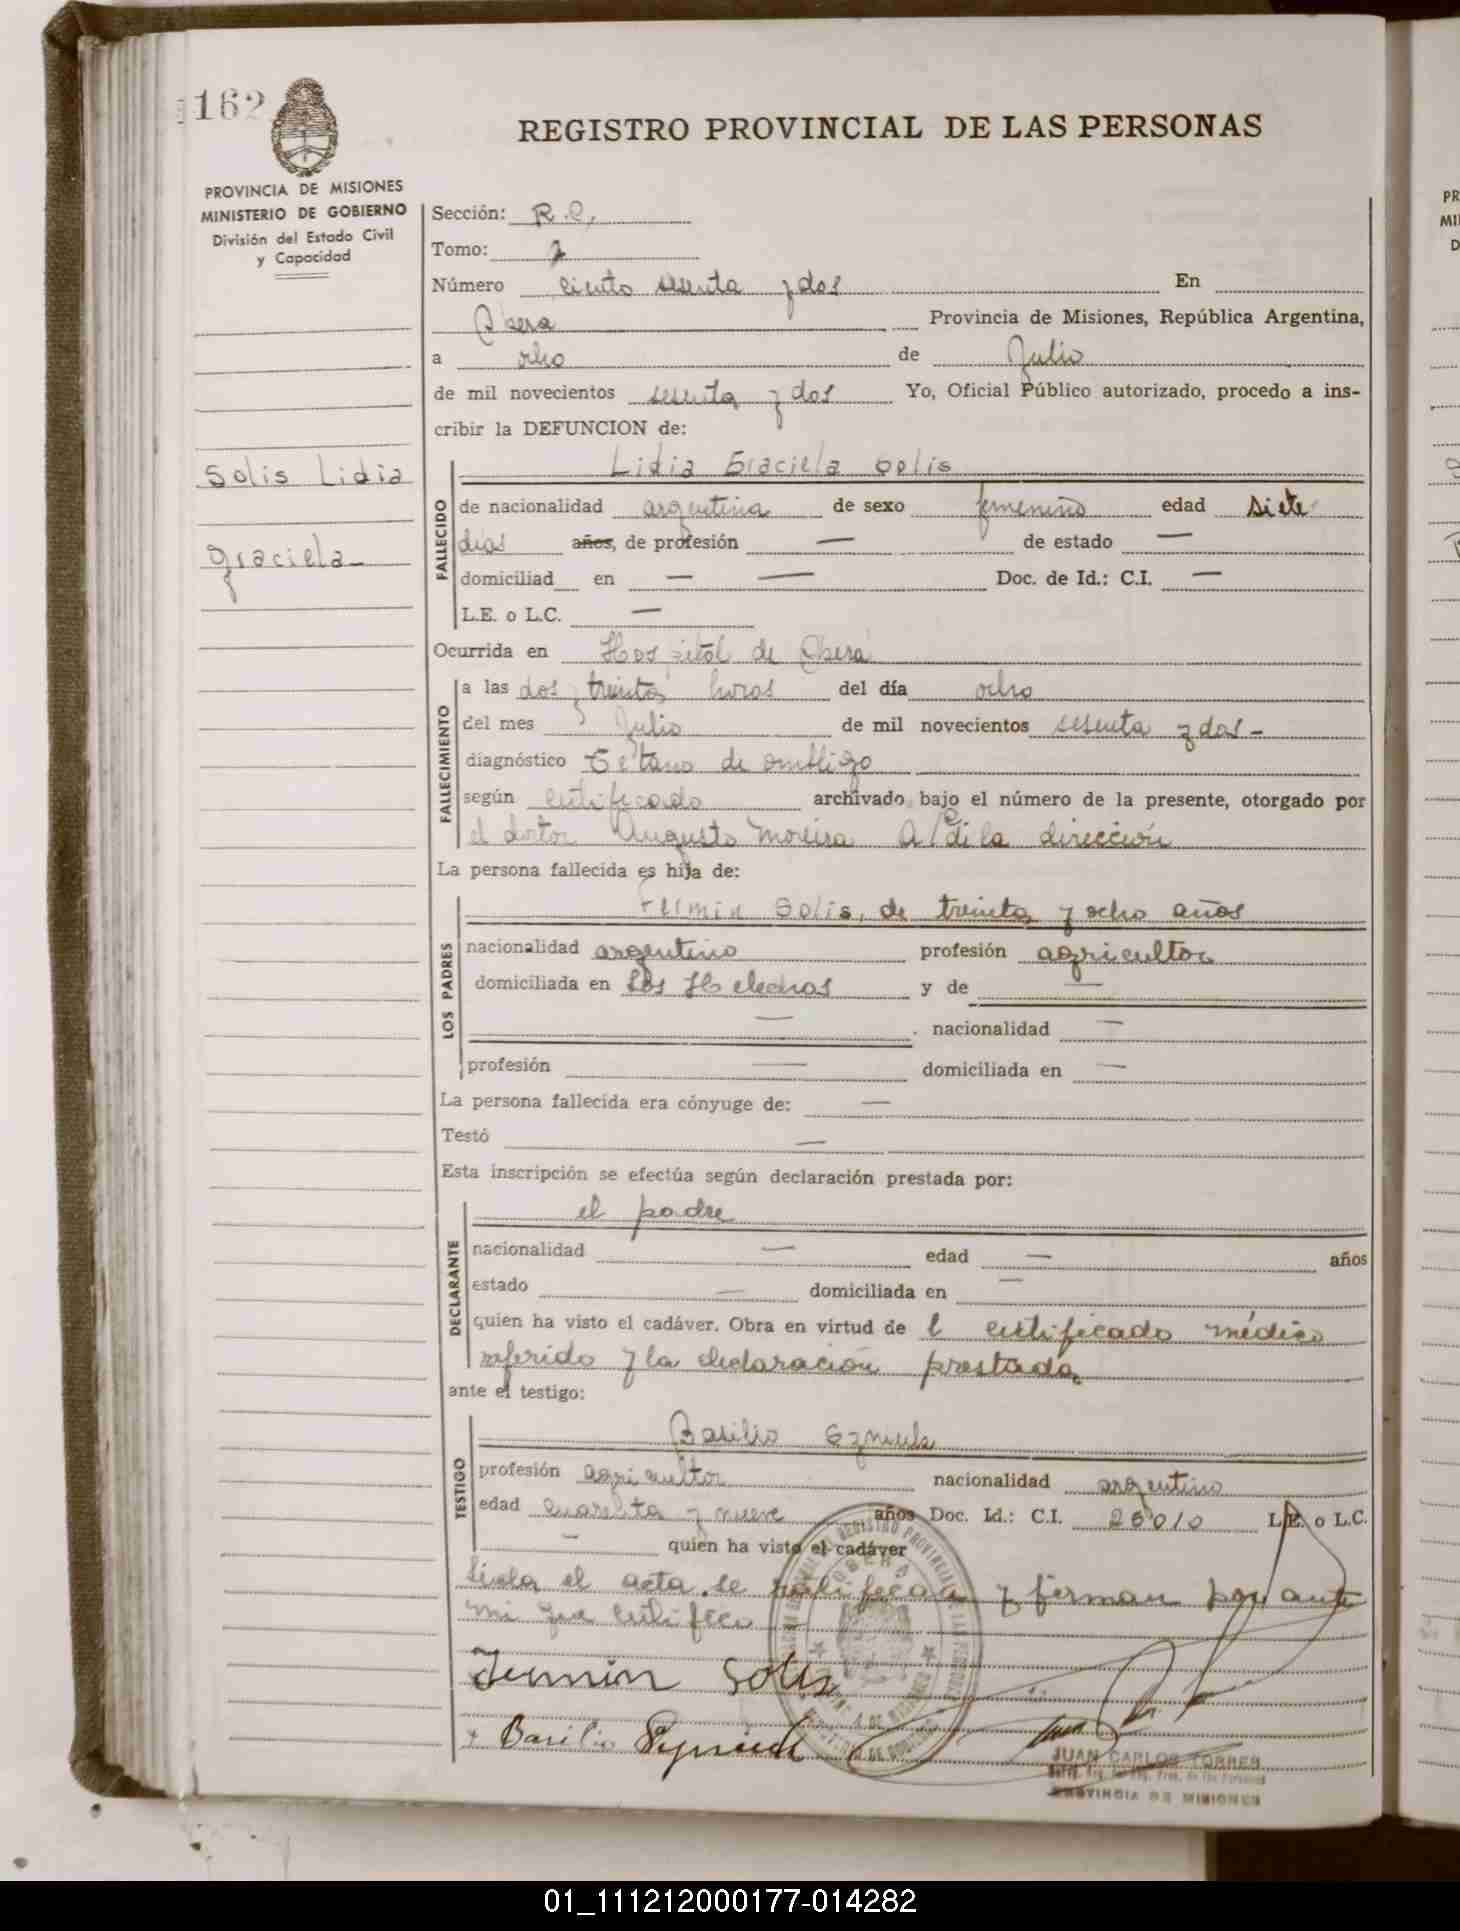 162
REGISTRO PROVINCIAL DE LAS PERSONAS
PROVINCIA DE MISIONES
MINISTERIO DE GOBIERNO
División del Estado Civil
y Capacidad
Solis Lidia
Graciela
Sección: R.C.
Tomo: 2
Número ciento sesenta y dos En
Obera Provincia de Misiones, República Argentina,
a ocho de Julio
de mil novecientos sesenta y dos Yo, Oficial Público autorizado, procedo a ins-
cribir la DEFUNCION de:
FALLECIDO
Lidia Graciela Solis
de nacionalidad argentina de sexo femenino edad siete
dias años, de profesión — de estado —
domiciliad en — — Doc. de Id.: C.I. —
L.E. o L.C. —
Ocurrida en Hospital de Oberá
FALLECIMIENTO
a las dos y treinta horas del día ocho
del mes Julio de mil novecientos sesenta y dos -
diagnóstico Tétano de ombligo
según certificado archivado bajo el número de la presente, otorgado por
el doctor Augusto Moreira A/C de la dirección
La persona fallecida es hija de:
LOS PADRES
Fermin Solis, de treinta y ocho años
nacionalidad argentino profesión agricultor
domiciliada en Los Helechos y de —
— nacionalidad —
profesión — domiciliada en —
La persona fallecida era cónyuge de: —
Testó —
Esta inscripción se efectúa según declaración prestada por:
DECLARANTE
el padre
nacionalidad — edad — años
estado — domiciliada en —
quien ha visto el cadáver. Obra en virtud de l certificado médico
referido y la declaración prestada
ante el testigo:
TESTIGO
Basilio
profesión agricultor nacionalidad argentino
edad cuarenta y nueve años Doc. Id.: C.I. 25010 L.E. o L.C.
— quien ha visto el cadáver
Leida el acta se ratifican y firman por ante
mi que certifico
Fermin Solis
Basilio
JUAN CARLOS TORRES
PROVINCIA DE MISIONES
01_111212000177-014282